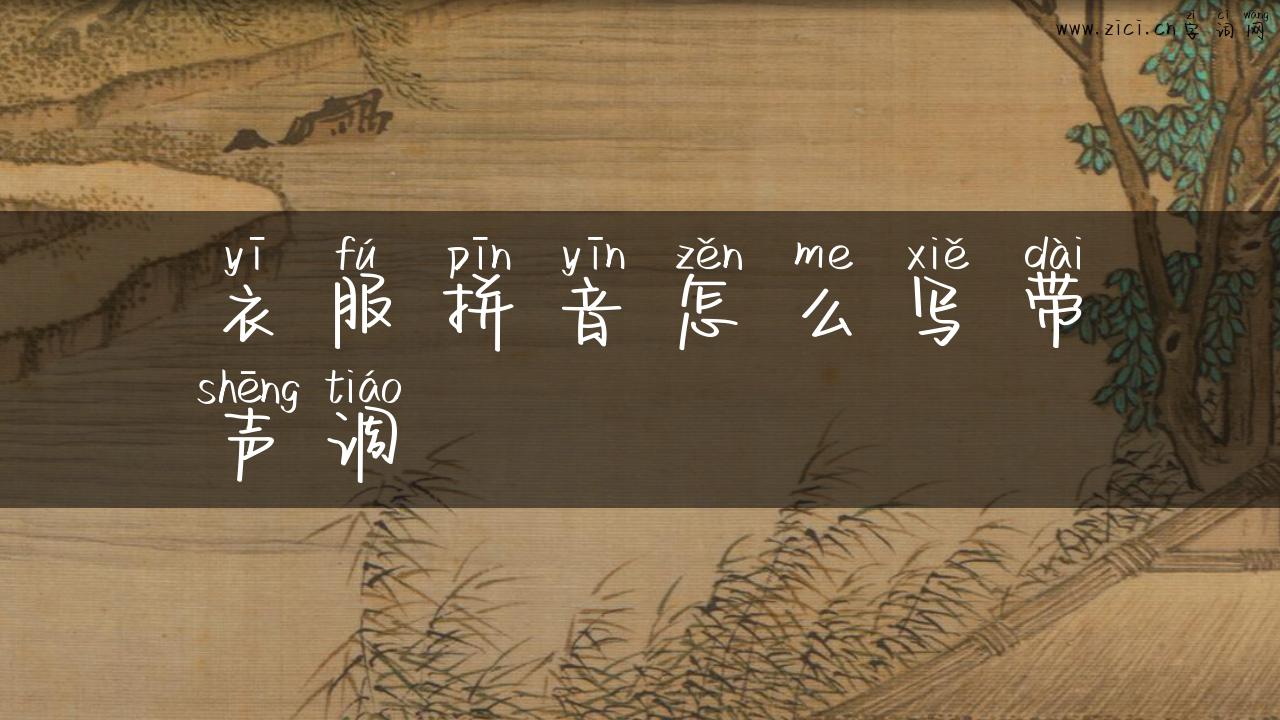 zì cí wǎng
www.zici.cn字词网
yī fú pīn yīn zěn me xiě dài
衣服拼音怎么写带
shēng tiáo
声调